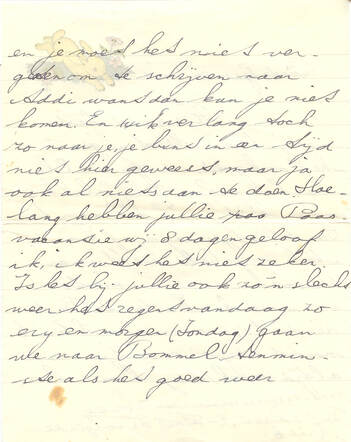 en je moet het niet ver-
geten om te schrijven naar
Addi want dan kun je niet
komen. En ik verlang toch
zo naar je, je bent in een tijd
niet hier geweest, maar ja
ook al niets aan te doen Hoe-
lang hebben jullie Paas-
vacantie wij 8 dagen geloof
ik, ik weet het niet zeker.
Is het bij jullie ook zo'n slecht
weer het regent vandaag zo
erg en morgen (Zondag) gaan
we naar Bommel tenmin-
ste als het goed weer